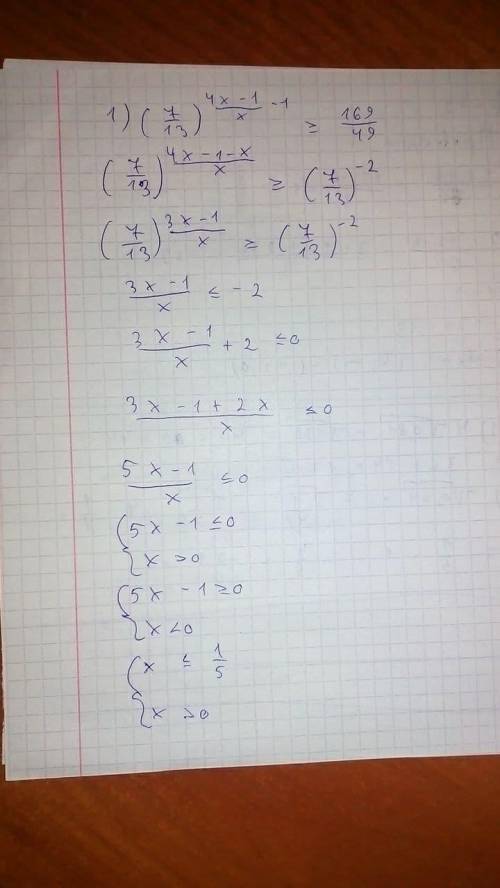 1) (7/13)^((4x-1)/x -1) ≥ 169/49
(7/13)^((4x-1-x)/x) ≥ (7/13)^(-2)
(7/13)^((3x-1)/x) ≥ (7/13)^(-2)
(3x-1)/x ≤ -2
(3x-1)/x + 2 ≤0
(3x-1+2x)/x ≤0
(5x-1)/x ≤0
{5x-1≤0
{x>0
{5x-1≥0
{x<0
{x ≤ 1/5
{x >0